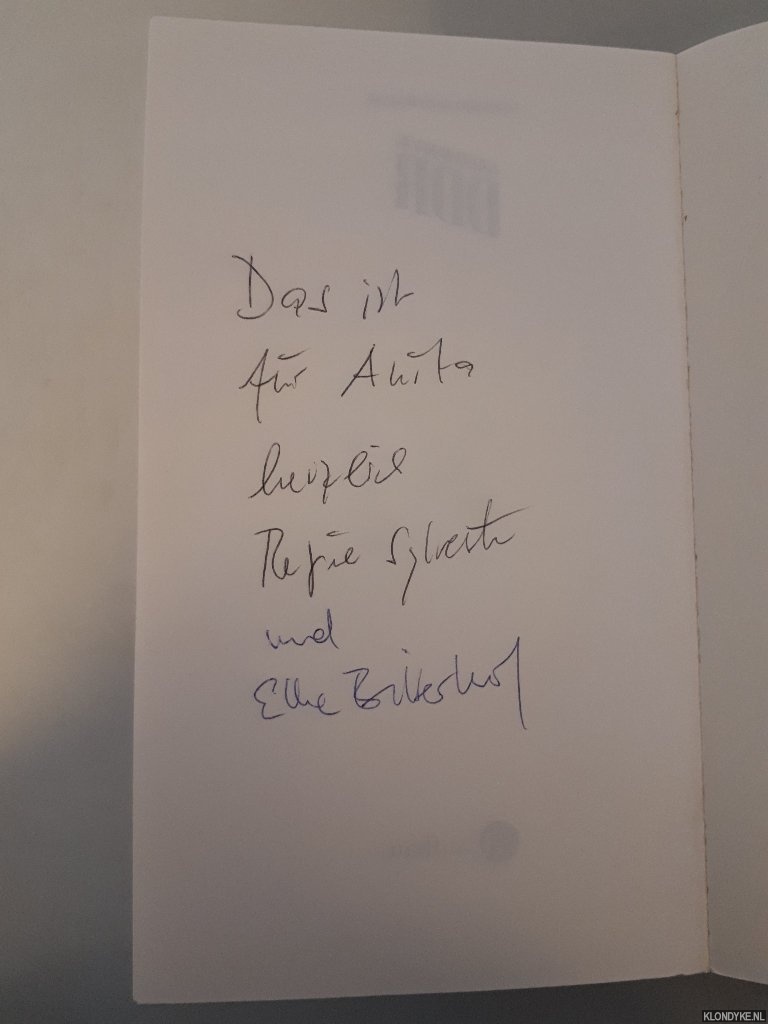 Das ist
für Anita
herzlich
Regine Sylvester
und
Elke Bitterhof
KLONDYKE.NL